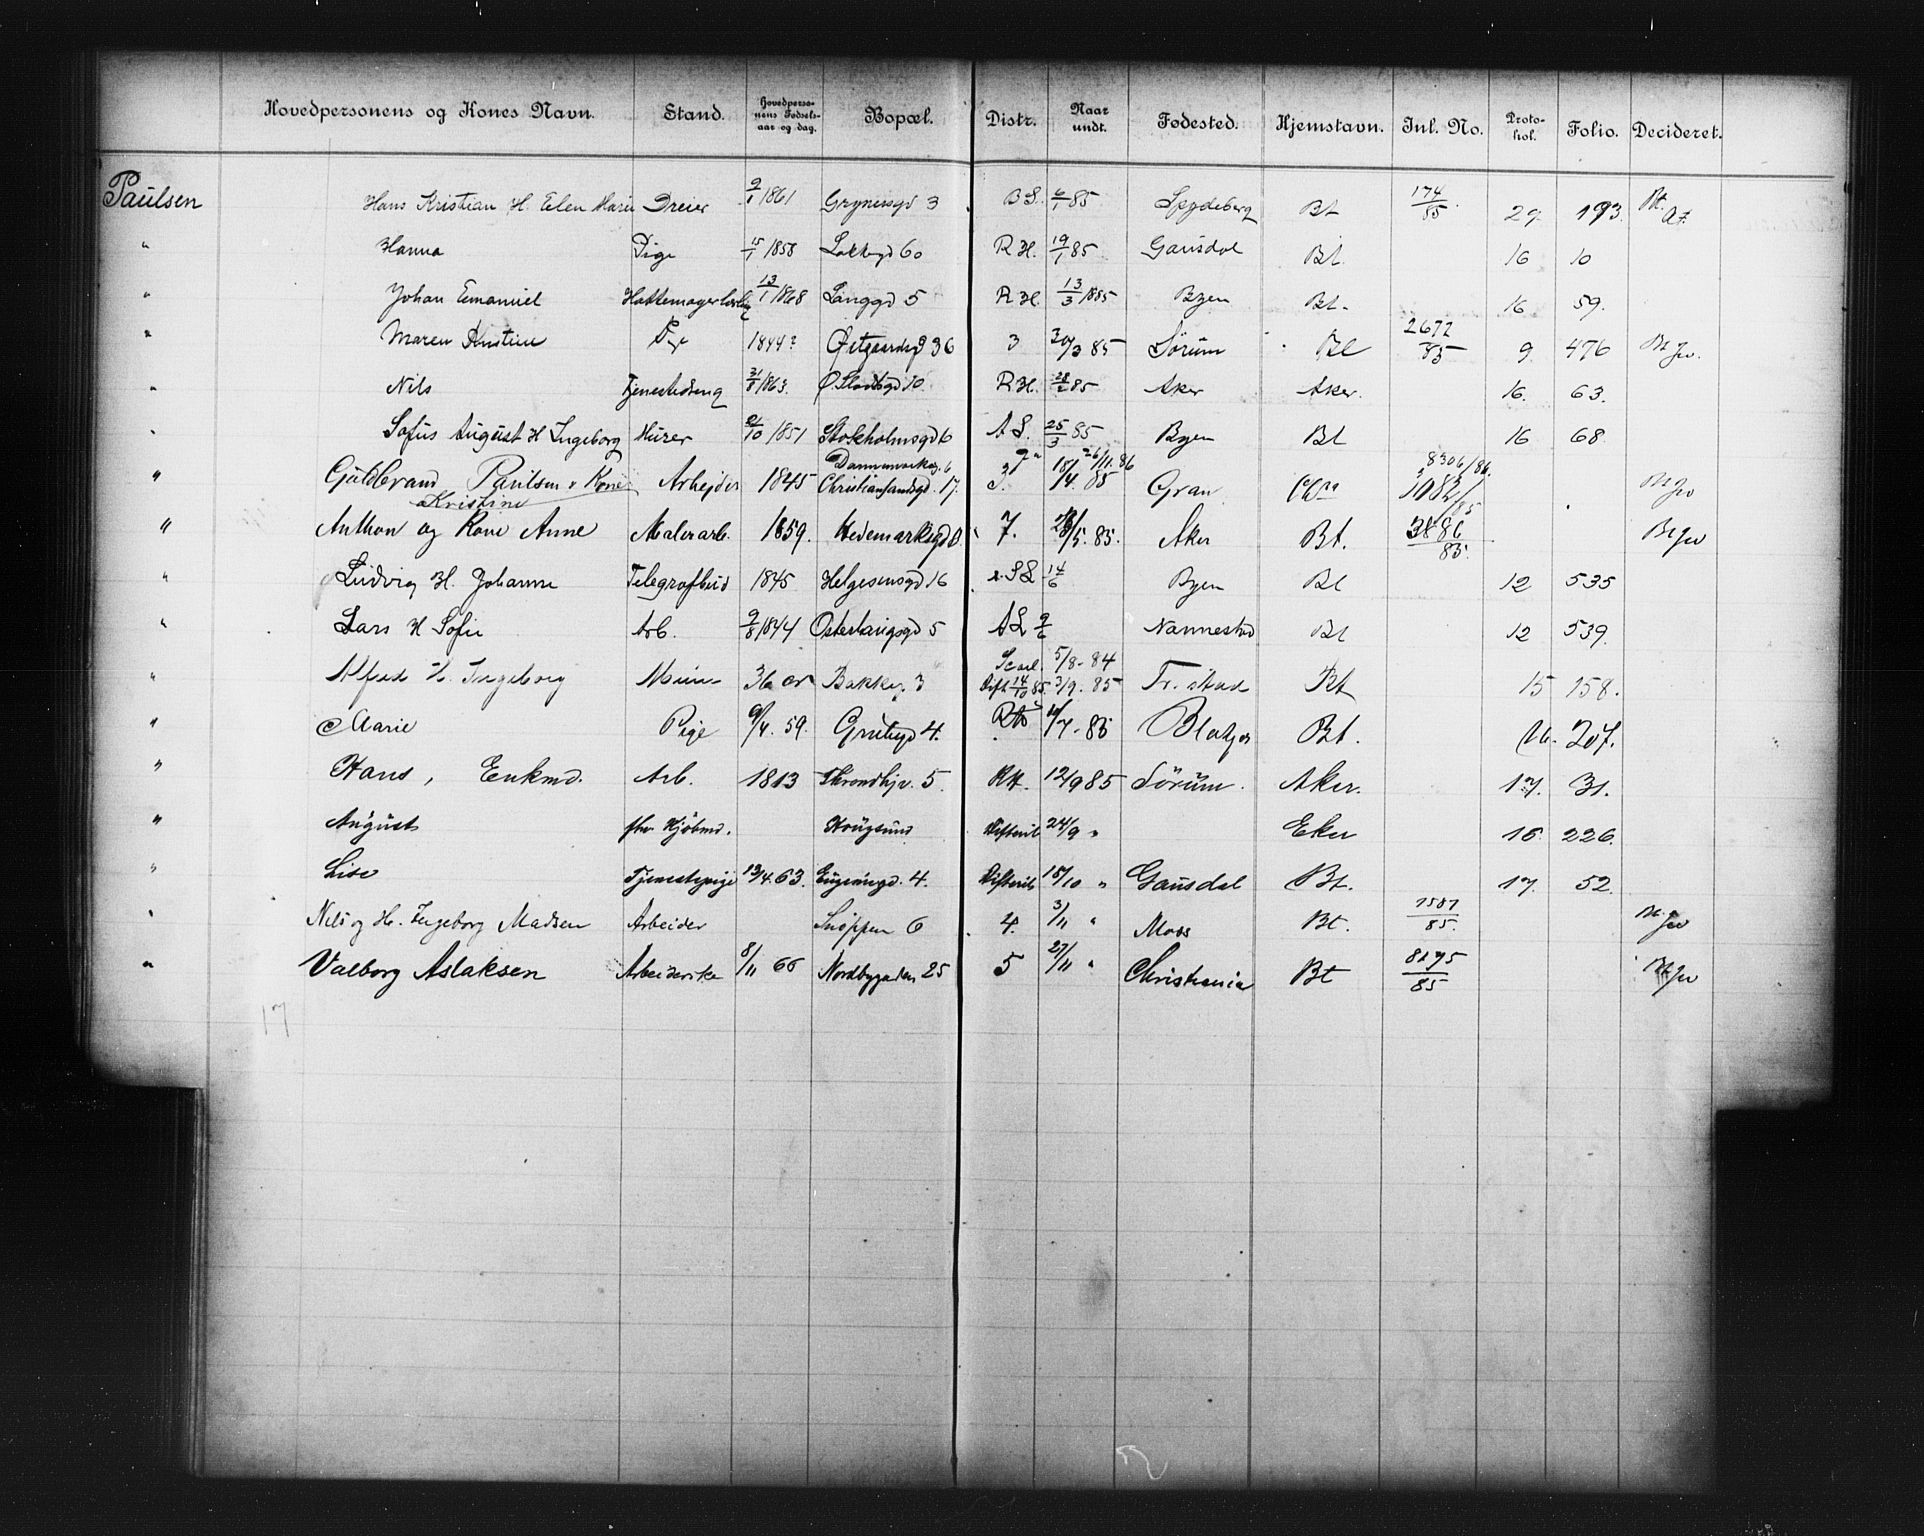 Hovedpersonens og Kones Navn. Stand. Hovedperso-nens Fødsels-aar og dag. Bopæl. Distr. Naar undt. Fødested. Hjemstavn. Inl. No. Proto-kol. Folio. Decideret.
Paulsen Hans Kristian H. Elen Marie Dreier 9/1 1861 Grynersgd 3 B S. 6/1 85 Spydeberg Bt 174/85 29. 193.
" Hanna Pige 15/1 1858 Lakkegd 60 R H. 19/1 85 Gausdal Bt. 16 10
" Johan Emanuel Hattemagerlærling 13/1 1868 Langgd 5 R H. 13/3 1885 Byen Bt. 16 59.
" Maren Kristine Pige 1844? Østgaardsgd 36 3 20/3 85 Sørum Bt 2672/85 9. 476
" Nils Tjenestedreng 31/8 1863. Ø. Slotsgd 10 R H. 28/2 85 Aker Aker. 16. 63.
" Sofus August H Ingeborg Murer 2/10 1851 Stokholmsgd 6 A S. 25/3 85 Byen Bt 16 68
Dannemarksg. 6 26/11. 86 8306/86
" Guldbrand Paulsen & Kone Arbejder 1845 Christiansandsgd. 17. 3. 18/4. 85 Gran 3082/85
Kristine
" Anthon og Kone Anne Malerarb. 1859. Hedemarksgd 7. /5. 85. Aker Bt. 3886/85.
" Ludvig H. Johanne Telegrafbud 1845 Helgesensgd 16 14/6 Byen Bt 12 535
" Lars H Sofie Arb. 9/8 1844 Østerhaugsgd 5 A L 9/6 Nannestad Bt 12 539.
Scarl. 5/8. 84
" Alfred H. Ingeborg 36 år Bakkeg. 3 Dift 14/10 85. 3/9. 85 Fr.stad Bt 15 158.
" Marie Pige 9/4. 59. Grubegd 4. /7. 85 Bt. 16. 207.
" Hans, Enkmd. Arb. 1813 Throndhjv. 5. RH. 12/9 85 Sørum. Aker. 17. 31.
" August fhv Kjøbmd. Hougsund Difterit 24/9 " Eker 15. 226.
" Lise Tjenestepige 13/4. 63. Eugeniegd. 4. Difterit 15/10 " Gausdal Bt. 17. 52.
" Nils og H. Ingeborg Madsen Arbeider Snippen 6 4. 3/11 " Moss Bt. 7587/85.
" Valborg Aslaksen Arbeiderske 8/11 66 Nordbygaden 25 5 27/11 " Christiania Bt 8195/85
17